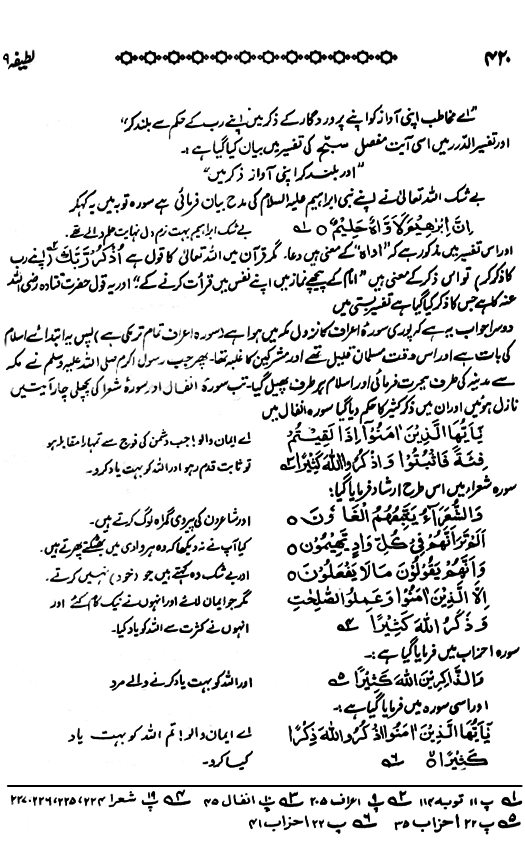 ۴۲۰ لطیفہ ۹
"اے مخاطب اپنی آواز کو اپنے پروردگار کے ذکر میں اپنے رب کے حکم سے بلند کر"
اور تفسیر الدرر میں اسی آیت مفصل سبّح کی تفسیر میں بیان کیا گیا ہے :۔
"اور بلند کر اپنی آواز ذکر میں"
بے شک اللہ تعالیٰ نے اپنے نبی ابراہیم علیہ السلام کی مدح بیان فرمائی ہے سورہ توبہ میں یہ کہہ کر
اِنَّ اِبْرٰهِیْمَ لَاَوَّاهٌ حَلِیْمٌ ۱ بے شک ابراہیم بہت نرم دل نہایت حلم والے تھے۔
اور اس تفسیر میں مذکور ہے کہ "اداہ" کے معنی ہیں دعا۔ مگر قرآن میں اللہ تعالیٰ کا قول ہے اُذْكُرْ رَّبَّكَ ۲ (اپنے رب
کا ذکر کر) تو اس ذکر کے معنی ہیں "امام کے پیچھے نماز میں اپنے نفس میں قرأت کرنے کے" اور یہ قول حضرت قتادہ رضی اللہ
عنہ کا ہے جس کا ذکر کیا گیا ہے تفسیر بستی میں
دوسرا جواب یہ ہے کہ پوری سورۂ اعراف کا نزول مکہ میں ہوا ہے (سورہ اعراف تمام تر مکی ہے) پس یہ ابتدائے اسلام
کی بات ہے اور اس وقت مسلمان قلیل تھے اور مشرکین کا غلبہ تھا۔ پھر جب رسول اکرم صلی اللہ علیہ وسلم نے مکہ
سے مدینہ کی طرف ہجرت فرمائی اور اسلام ہر طرف پھیل گیا۔ تب سورۂ انفال اور سورۂ شعرا کی پچھلی چار آیتیں
نازل ہوئیں اور ان میں ذکر کثیر کا حکم دیا گیا سورہ انفال میں
یٰۤاَیُّهَا الَّذِیْنَ اٰمَنُوْۤا اِذَا لَقِیْتُمْ اے ایمان والو! جب دشمن کی فوج سے تمہارا مقابلہ ہو
فِئَةً فَاثْبُتُوْا وَاذْكُرُوا اللّٰهَ كَثِیْرًا ۳ تو ثابت قدم رہو اور اللہ کو بہت یاد کرو۔
سورہ شعراء میں اس طرح ارشاد فرمایا گیا :
وَالشُّعَرَآءُ یَتَّبِعُهُمُ الْغَاوٗنَ ۵ اور شاعروں کی پیروی گمراہ لوگ کرتے ہیں۔
اَلَمْ تَرَ اَنَّهُمْ فِیْ كُلِّ وَادٍ یَّهِیْمُوْنَ ۵ کیا آپ نے نہ دیکھا کہ وہ ہر وادی میں بھٹکتے پھرتے ہیں۔
وَاَنَّهُمْ یَقُوْلُوْنَ مَا لَا یَفْعَلُوْنَ ۵ اور بے شک وہ کہتے ہیں جو (خود) نہیں کرتے۔
اِلَّا الَّذِیْنَ اٰمَنُوْا وَعَمِلُوا الصّٰلِحٰتِ مگر جو ایمان لائے اور انہوں نے نیک کام کئے اور
وَذَكَرُوا اللّٰهَ كَثِیْرًا ۴ انہوں نے کثرت سے اللہ کو یاد کیا۔
سورہ احزاب میں فرمایا گیا ہے :۔
وَالذَّاكِرِیْنَ اللّٰهَ كَثِیْرًا ۵ اور اللہ کو بہت یاد کرنے والے مرد
اور اسی سورہ میں فرمایا گیا ہے :۔
یٰۤاَیُّهَا الَّذِیْنَ اٰمَنُوا اذْكُرُوا اللّٰهَ ذِكْرًا اے ایمان والو! تم اللہ کو بہت یاد
كَثِیْرًا ۶ کیا کرو۔
۱ پ ۱۱ توبہ ۱۱۴ ۲ پ ۹ اعراف ۲۰۵ ۳ پ ۱۰ انفال ۴۵ ۴ پ ۱۹ شعرا ۲۲۴، ۲۲۵، ۲۲۶، ۲۲۷
۵ پ ۲۲ احزاب ۳۵ ۶ پ ۲۲ احزاب ۴۱